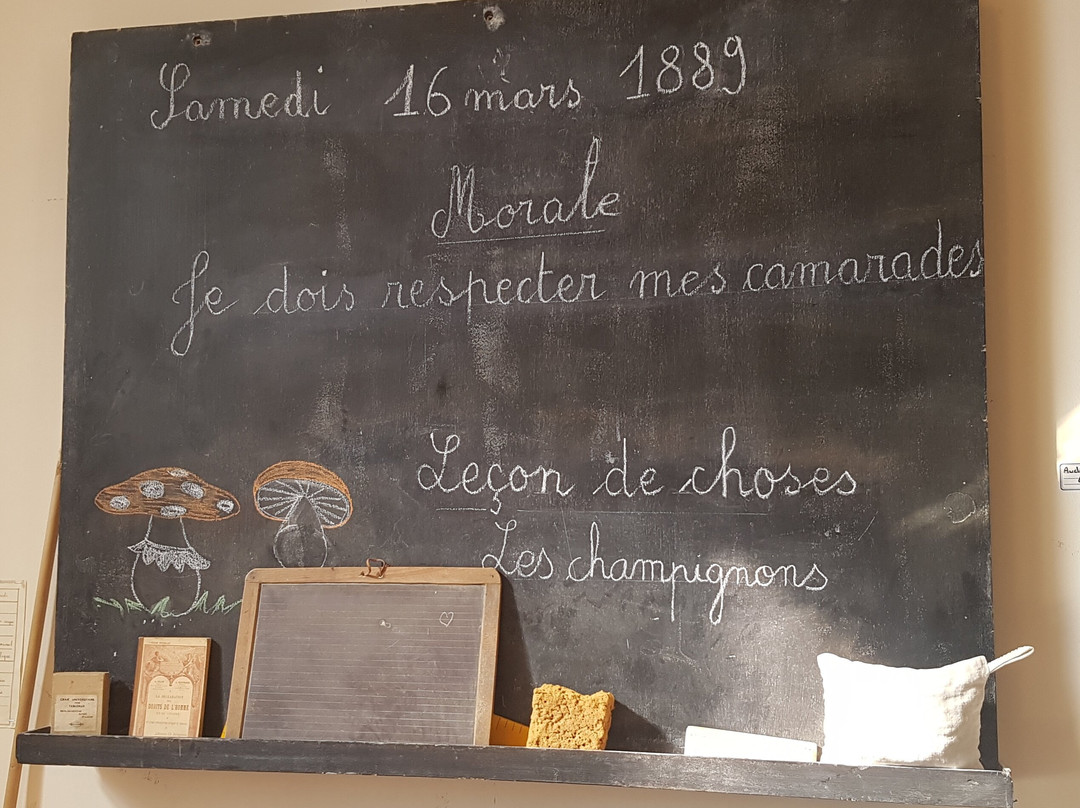 Samedi 16 mars 1889
Morale
Je dois respecter mes camarades
Leçon de choses
Les champignons
LA DÉCLARATION
DES
DROITS DE L'HOMME